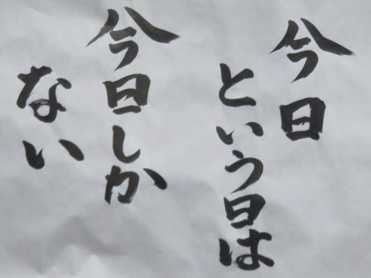 今日
という日は
今日しか
ない